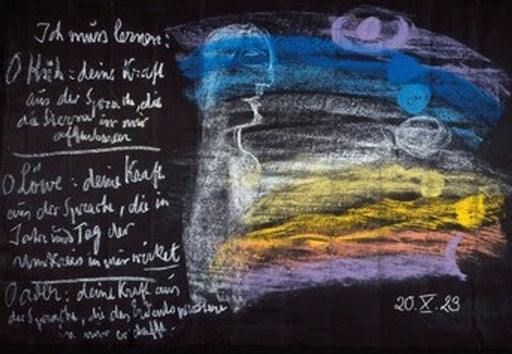 Ich muss lernen:
O Kuh: deine Kraft
aus der Sprache, die
die Sterne in mir
offenbaren
O Löwe: deine Kraft
aus der Sprache, die in
Jahr und Tag der
Umkreis in mir wirket
O Adler: deine Kraft aus
der Sprache, die
in mir erschafft.
20.X.23